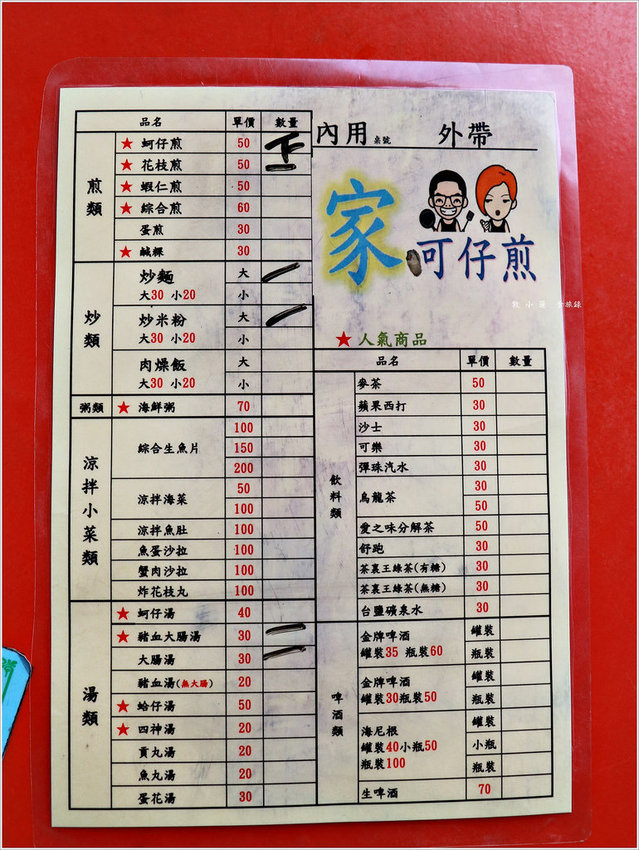 品名 單價 數量
煎類
★ 蚵仔煎 50
★ 花枝煎 50
★ 蝦仁煎 50
★ 綜合煎 60
蛋煎 30
★ 鹹粿 30
炒類
炒麵 大
大30 小20 小
炒米粉 大
大30 小20 小
肉燥飯 大
大30 小20 小
粥類 ★ 海鮮粥 70
涼拌小菜類
綜合生魚片 100
150
200
涼拌海菜 50
100
涼拌魚肚 100
魚蛋沙拉 100
蟹肉沙拉 100
炸花枝丸 100
湯類
★ 蚵仔湯 40
★ 豬血大腸湯 30
大腸湯 30
豬血湯(無大腸) 20
★ 蛤仔湯 50
★ 四神湯 20
貢丸湯 20
魚丸湯 20
蛋花湯 30
內用 桌號 外帶
家
可仔煎
★ 人氣商品
品名 單價 數量
飲料類
麥茶 50
蘋果西打 30
沙士 30
可樂 30
彈珠汽水 30
烏龍茶 30
50
愛之味分解茶 50
舒跑 30
茶裏王綠茶(有糖) 30
茶裏王綠茶(無糖) 30
台鹽礦泉水 30
啤酒類
金牌啤酒 罐裝
罐裝35 瓶裝60 瓶裝
金牌啤酒 罐裝
罐裝30瓶裝50 瓶裝
海尼根 罐裝
罐裝40小瓶50 小瓶
瓶裝100 瓶裝
生啤酒 70